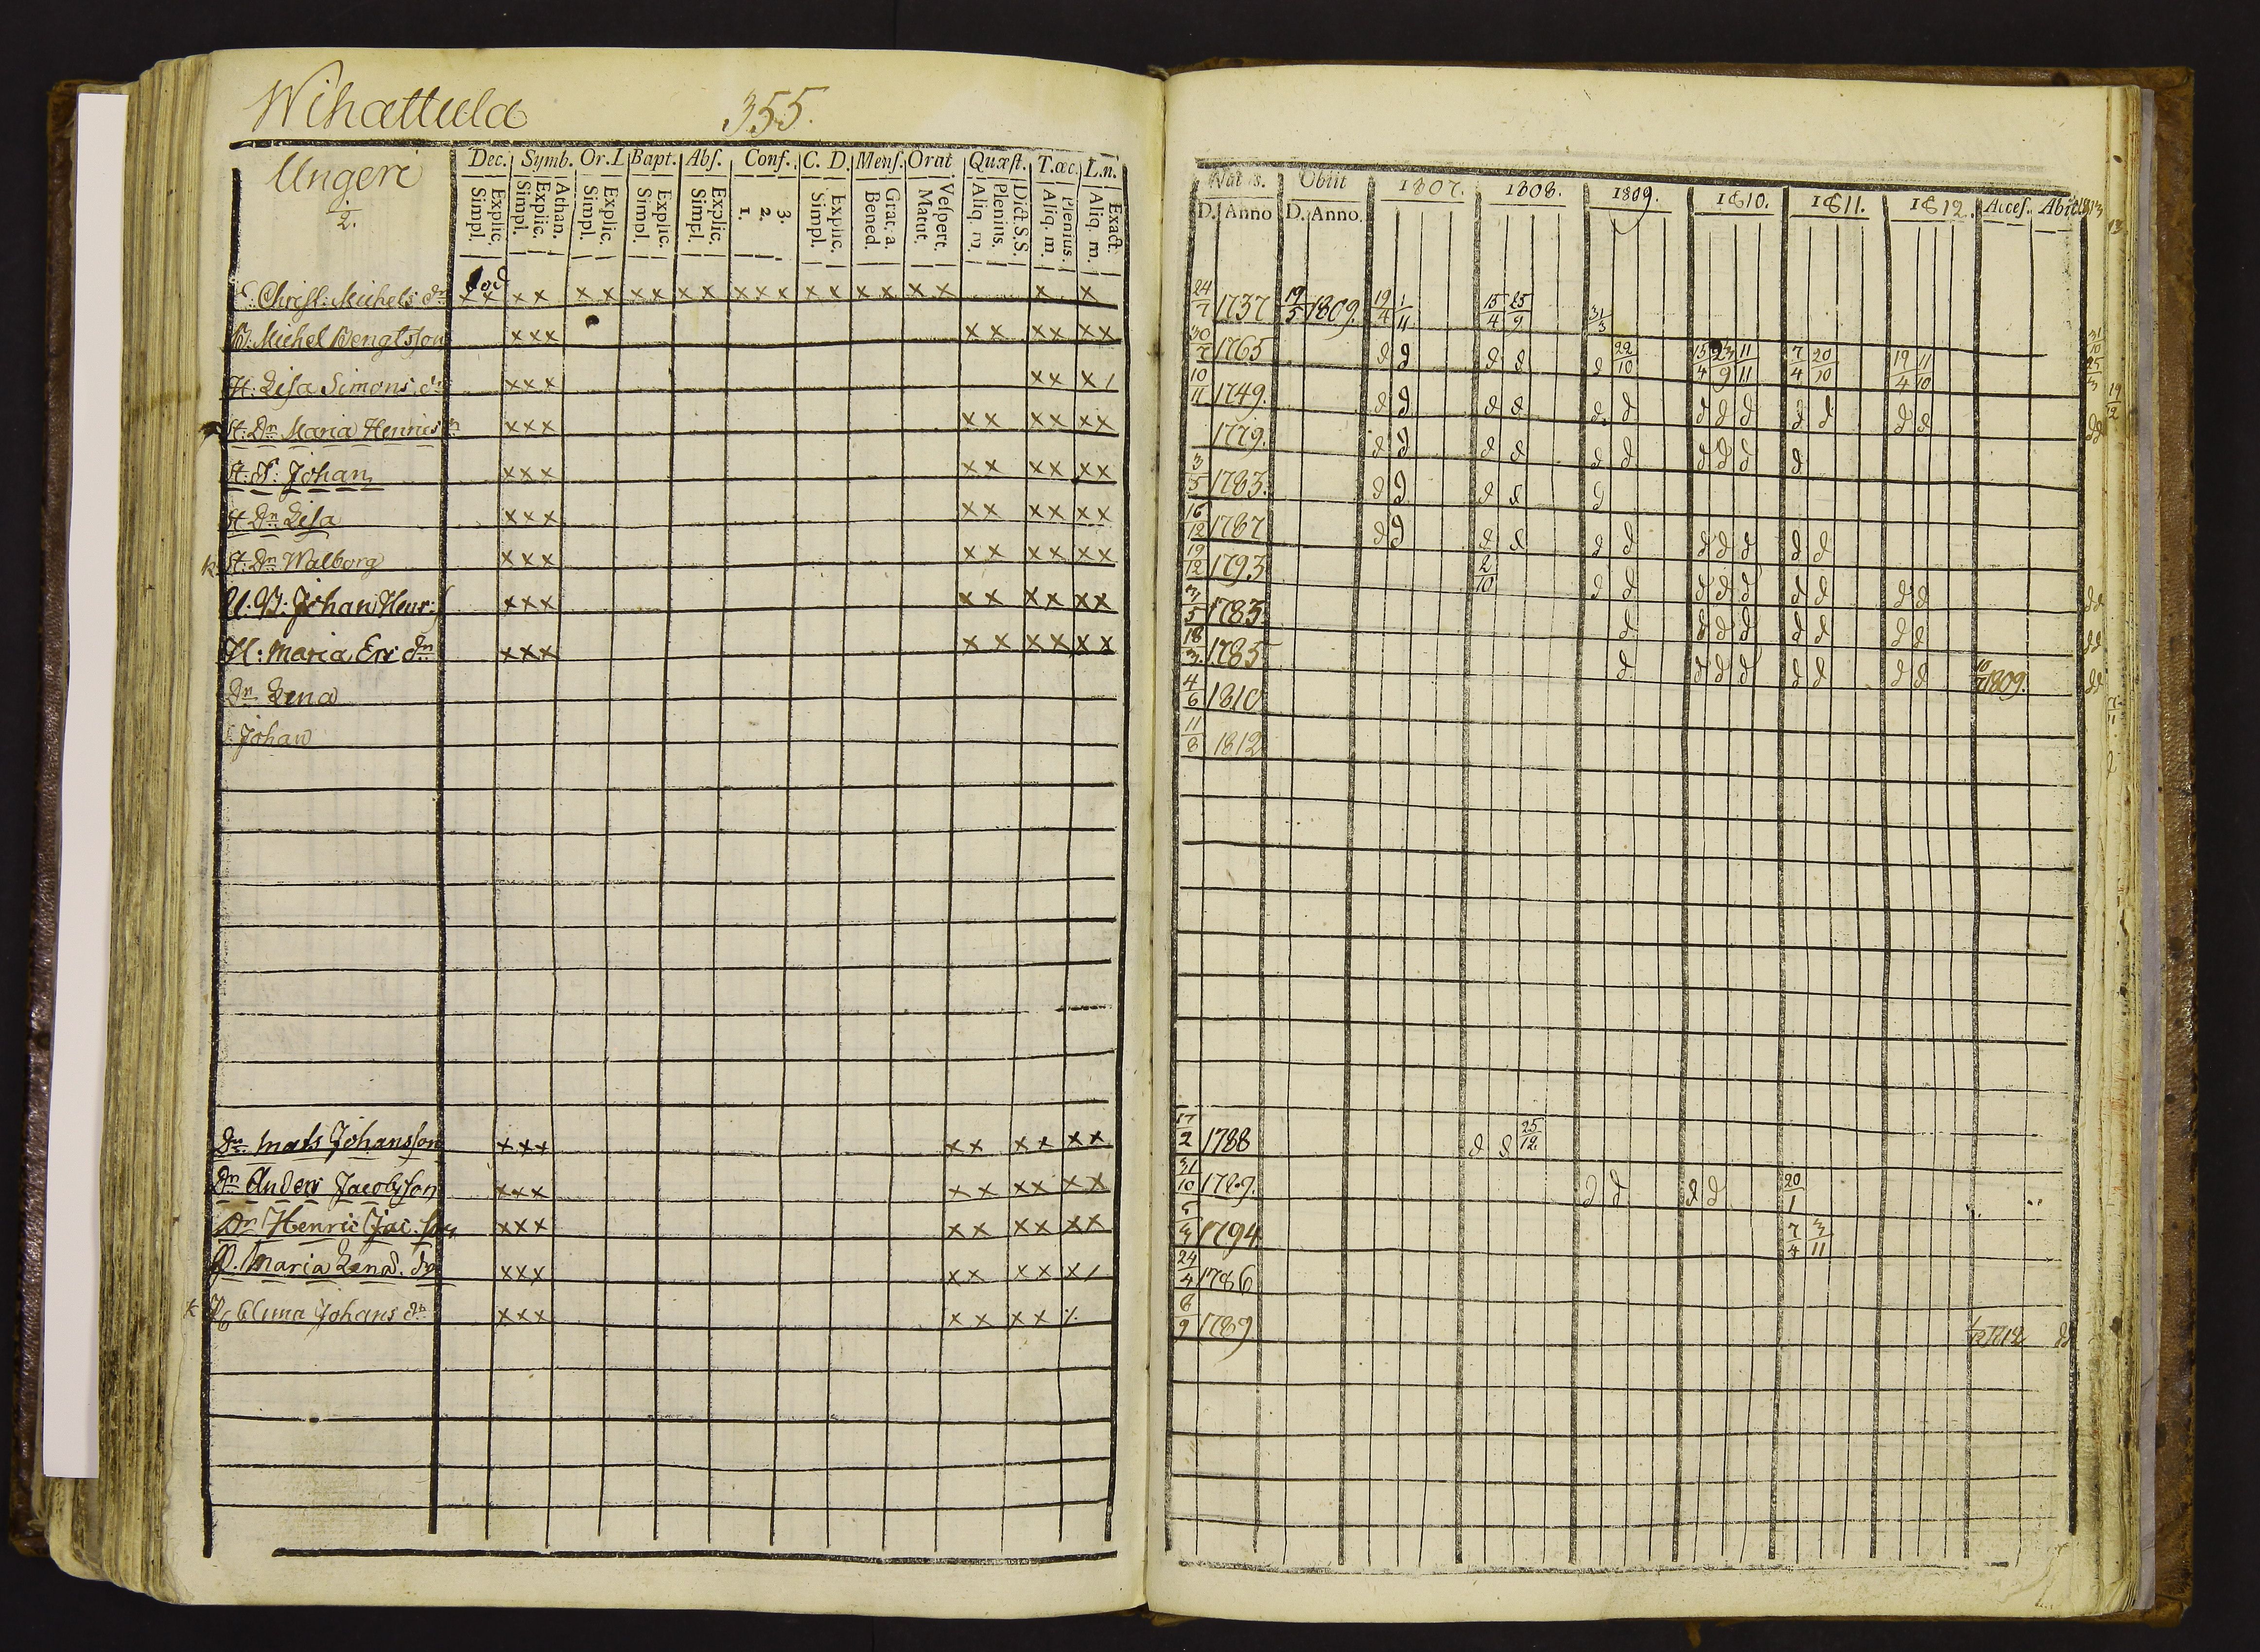 Wihattula 355.
Ungeri
2.
Dec. Symb. Or. I. Bapt. Abs. Conf. C. D. Mens. Orat Quæst. T. œc. L. n.
Explic. Simpl. Athan. Explic. Simpl. Explic. Simpl. Explic. Simpl. Explic. Simpl. 3. 2. 1. Explic. Simpl. Grat. a. Bened. Vespert. Matut. Dict. S. S. Plenius. Aliq. m. Plenius. Aliq. m. Exact. Aliq. m.
Christ: Michels dr
B: Michel Bengtsson
H: Lisa Simons dr
H: Dn Maria Henrics dn
H: S: Johan
H Dn Lisa
k H: Dn Walborg
U: B: Johan Henr:
H: Maria Eri dn
Dn Lena
Johan
Dn Mats Johansson
Dn Anders Jacobsson
Dn Henric Jac. son
P. Maria Lena
k Johans dr
Natus. Obiit 1807. 1808. 1809. 1810. 1811. 1812. Acces. Abit. 1813
D. Anno D. Anno.
24/7 1737 19/5 1809. 19/4 1/11 15/4 25/9 31/3
30/7 1765 d d d d d 22/10 15/4 23/9 11/11 7/4 20/10 19/4 11/10
10/11 1749. d d d d d d d d d d d d d
1779. d d d d d d d d d d
3/5 1783. d d d d d
16/12 1787 d d d d d d d d d d d
19/12 1793 2/10 d d d d d d d d d
3/5 1783. d d d d d d d d
18/3. 1785 d d d d d d d d 1809.
4/6 1810
11/8 1812
17/2 1788 d d 25/12
31/10 1789. d d d d 20/1
1794 7/4 3/11
24/4 1786
8/9 1789